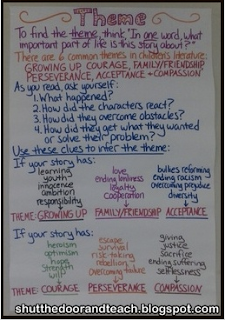 Theme
To find the theme, think, "In one word, what
important part of life is this story about?"
There are 6 common themes in children's literature:
GROWING UP, COURAGE, FAMILY/FRIENDSHIP
PERSEVERANCE, ACCEPTANCE + COMPASSION
As you read, ask yourself:
1. What happened?
2. How did the characters react?
3. How did they overcome obstacles?
4. How did they get what they wanted
or solve their problem?
Use these clues to infer the theme:
If your story has:
learning
youth
innocence
ambition
responsibility
THEME: GROWING UP
love
ending loneliness
loyalty
cooperation
FAMILY/FRIENDSHIP
bullies reforming
ending racism
overcoming prejudice
diversity
ACCEPTANCE
If your story has:
heroism
optimism
hope
strength
will
THEME: COURAGE
escape
survival
risk-taking
rebellion
overcoming failure
PERSEVERANCE
giving
justice
sacrifice
ending suffering
selflessness
COMPASSION
shutthedoorandteach.blogspot.com